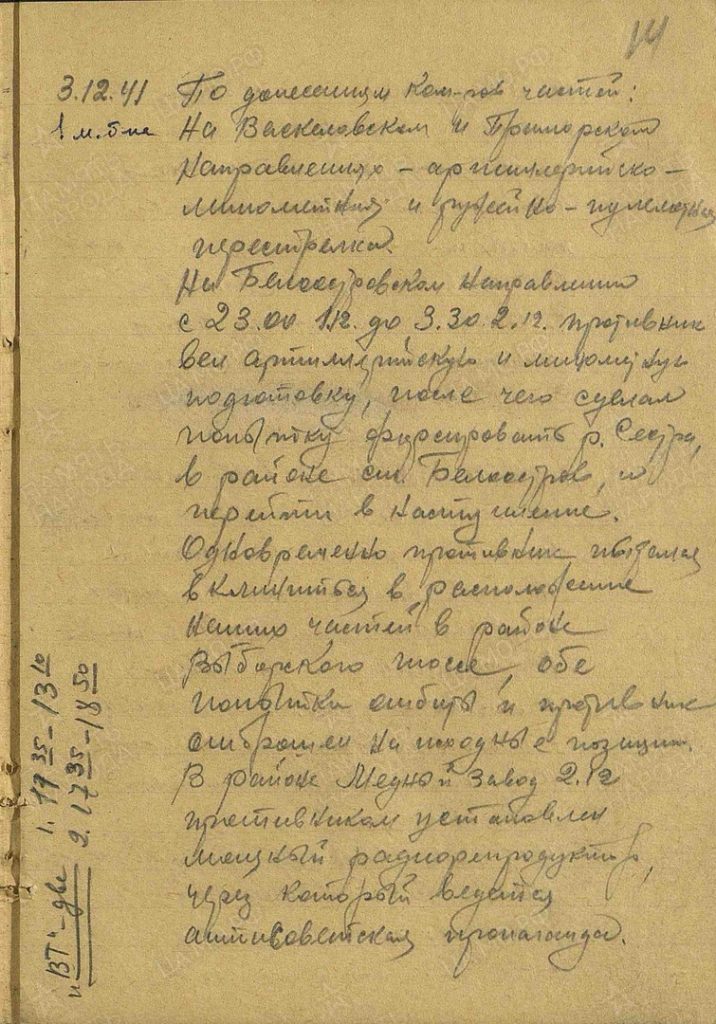 14
3.12.41 По донесениям ком-ров частей:
1 м.
На Васкеловском и Приморском
направлениях – артиллерийско-
минометная и ружейно-пулеметная
перестрелка.
На Белоостровском направлении
с 23.00 1.12. до 3.30 2.12. противник
вел артиллерийскую и минометную
подготовку, после чего сделал
попытку форсировать р. Сестра,
в районе ст. Белоостров, и
перейти в наступление.
Одновременно противник пытался
вклиниться в расположение
наших частей в районе
Выборгского шоссе, обе
попытки отбиты и противник
отброшен на исходные позиции.
В районе Медный Завод 2.12
противником установлен
мощный радиорепродуктор,
через который ведется
антисоветская пропаганда.
"ВТ"-две 1. 35 – 13 10
2. 17 35 – 18 50